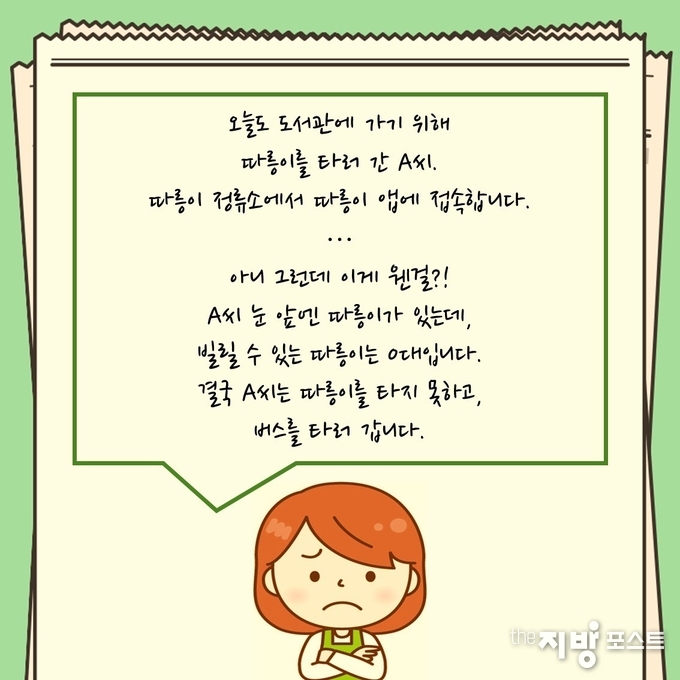 오늘도 도서관에 가기 위해
따릉이를 타러 간 A씨.
따릉이 정류소에서 따릉이 앱에 접속합니다.
...
아니 그런데 이게 웬걸?!
A씨 눈 앞엔 따릉이가 있는데,
빌릴 수 있는 따릉이는 0대입니다.
결국 A씨는 따릉이를 타지 못하고,
버스를 타러 갑니다.
the지방포스트